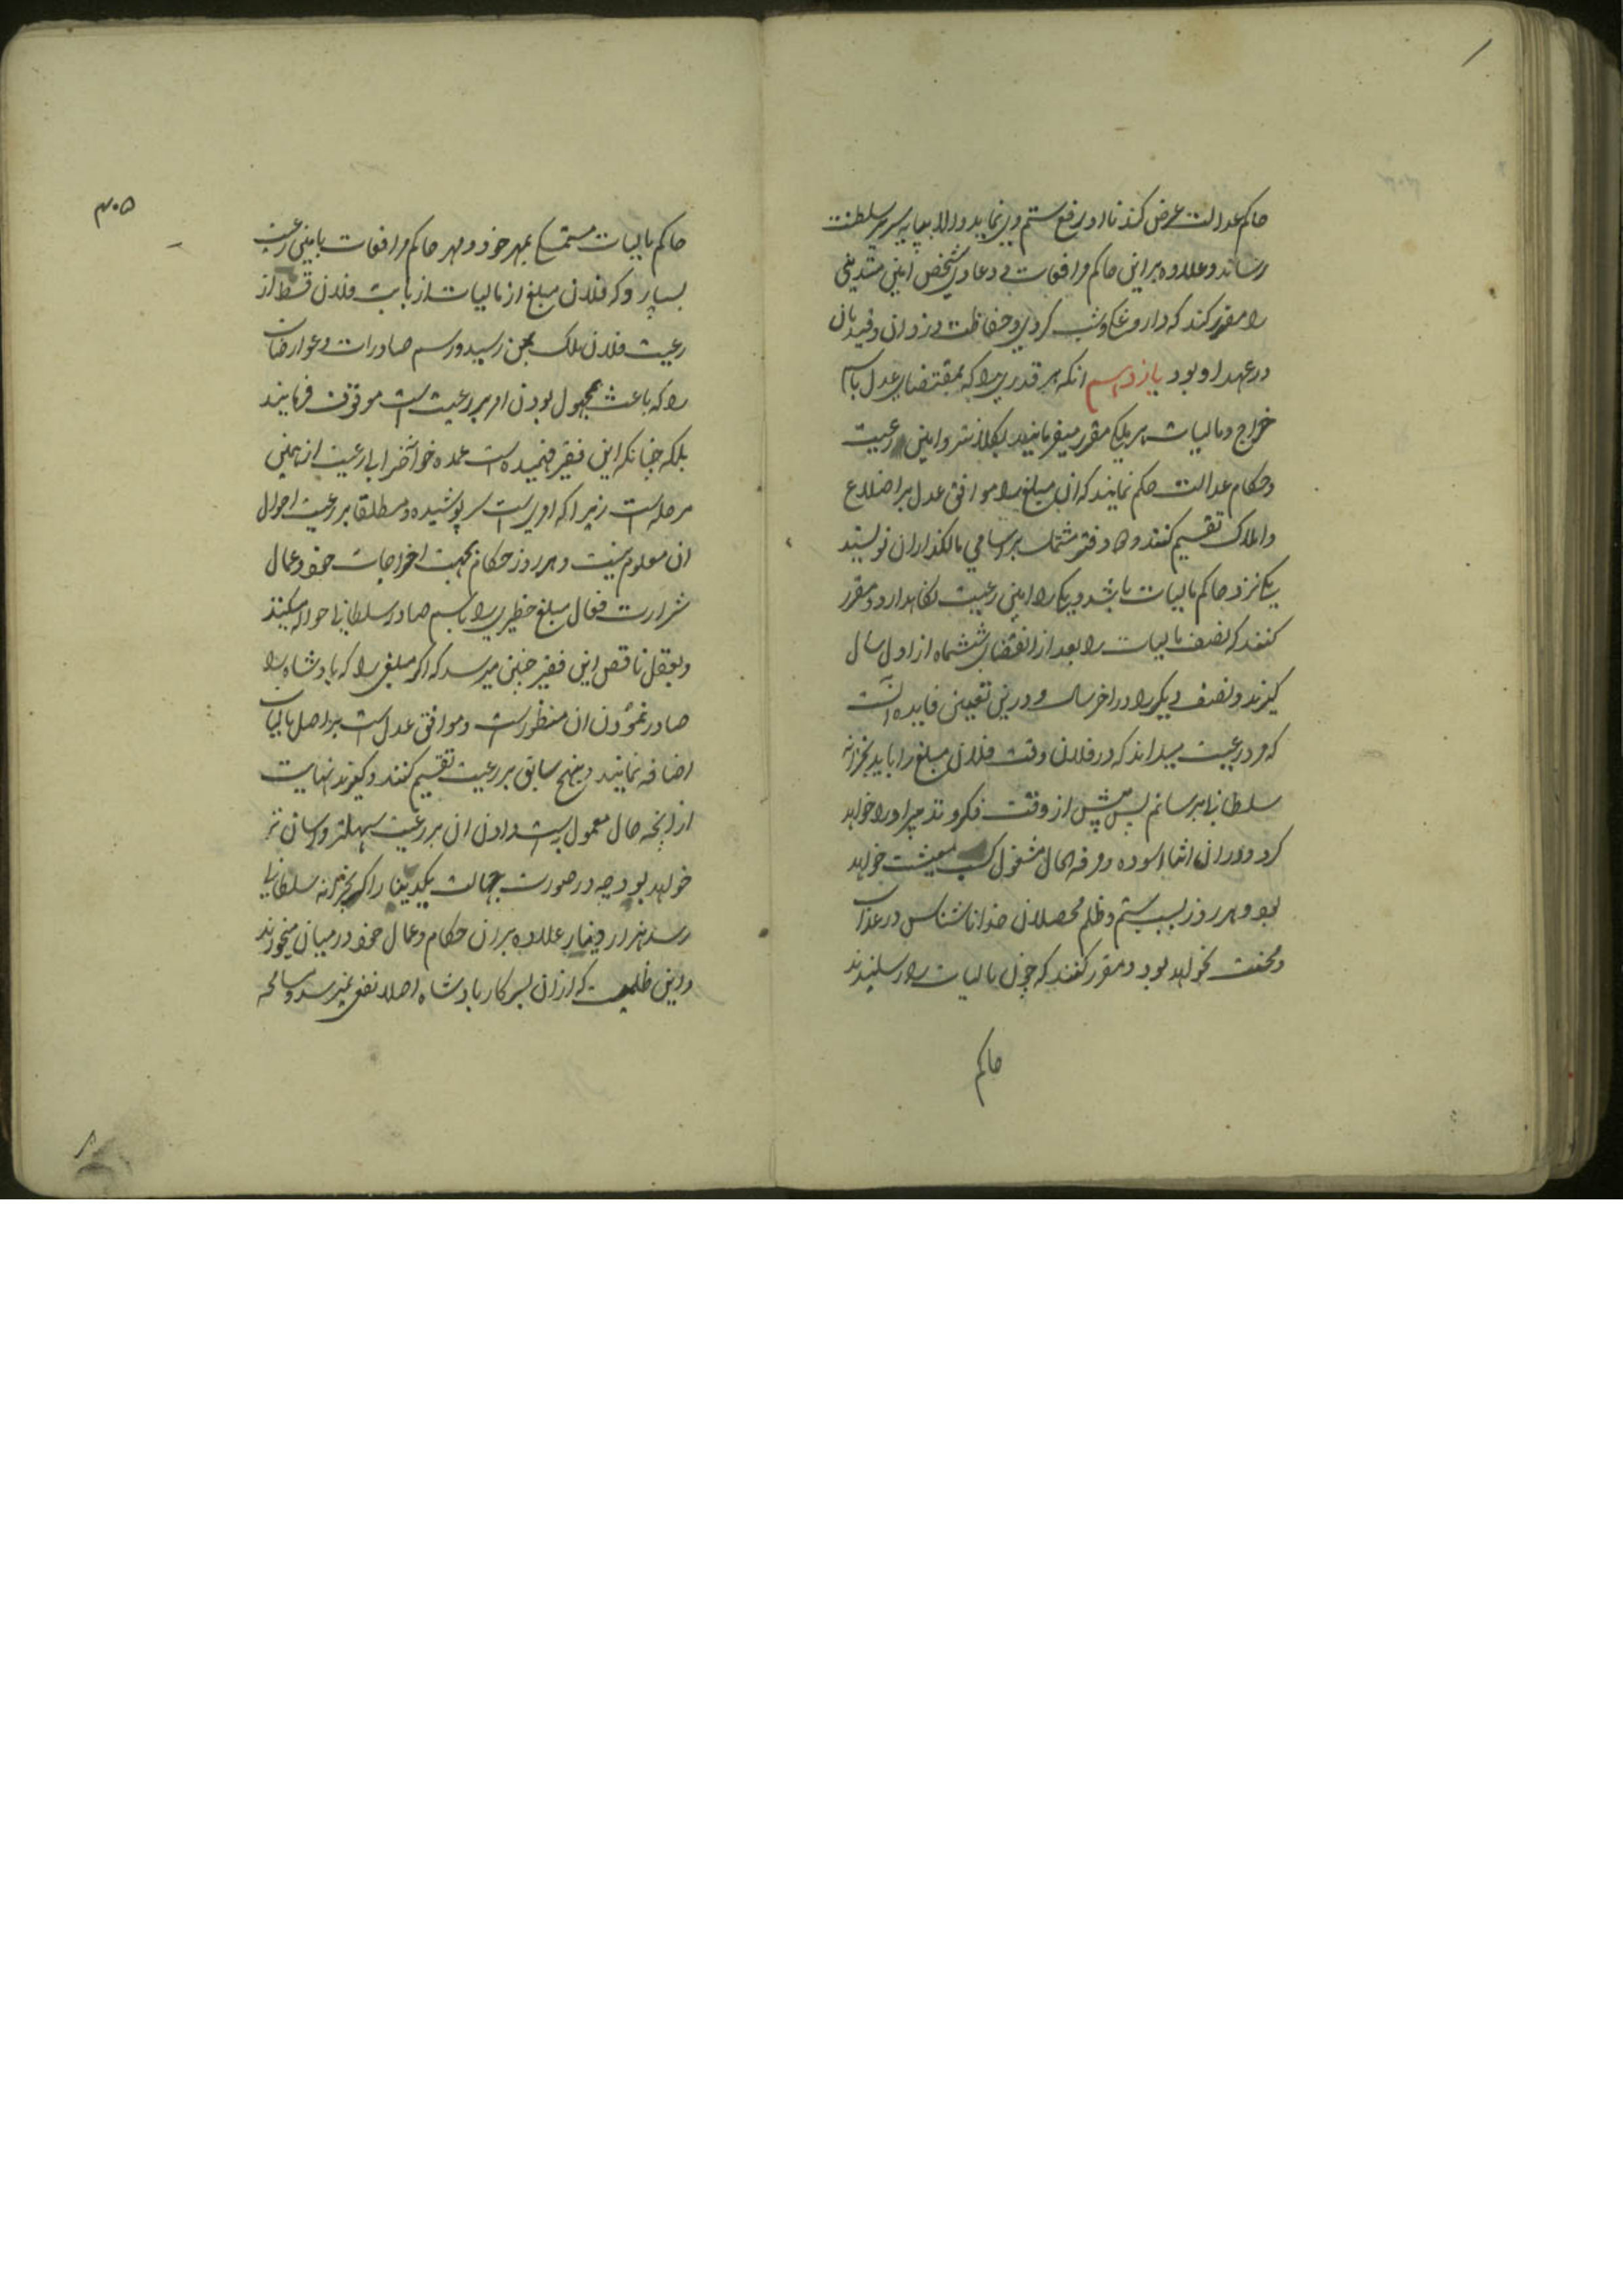 حاکم عدالت عرض کند تا او رفع ستم وی نماید والا بپایه سریر سلطنت
رساند و علاوه بر این حاکم مرافعات و دعاوی شخص امین متدینی
را مقرر کند که داروغکی شب کردی و حفاظت دزدان و قیدیان
در عهد او بود یازدهم انکه هر قدری را که بمقتضای عدل باسم
خراج و مالیات هر ملکی مقرر میفرمایند بکلانتر و امین رعیت
و حکام عدالت حکم نمایند که ان مبلغ را موافق عدل بر اضلاع
و املاک تقسیم کنند و دو دفتر مشتمل بر اسامی مالکذاران نویسند
یکی نزد حاکم مالیات باشد و یکی را امین رعیت نکاهدارد و مقرر
کنند که نصف مالیات را بعد از انقضای ششماه از اول سال
کیرند و نصف دیکر را در اخر سال و درین تعیین فایده آنست
که مرد رعیت میداند که در فلان وقت فلان مبلغ را باید بخزانه
سلطانی برسانم پس پیش از وقت فکر و تدبیر او را خواهد
کرد و در ان اثنا اسوده و مرفه الحال مشغول کسب معیشت خواهد
بود و هر روز بسبب ستم و ظلم محصلان خدا ناشناس در عذاب
و محنت نخواهد بود و مقرر کنند که چون مالیات را رسانیدند
حاکم
۳۰۵
حاکم مالیات تمسکی بمهر خود و مهر حاکم مرافعات بامین رعیت
بسپارد که فلان مبلغ از مالیات از بابت فلان قسط از
رعیت فلان ملک بمن رسید و رسم صادرات و عوارضات
را که باعث مجهول بودن امر بر رعیت است موقوف فرمایند
بلکه چنانکه این فقیر فهمیده است عمده خرابی رعیت از همین
مرحله است زیرا که امریست سر پوشیده و مطلقا بر رعیت احوال
ان معلوم نیست و هر روز حکام بجهت اخراجات خود و عمال
شرارت فعال مبلغ خطیری را باسم صادر سلطانی حواله میکنند
و بعقل ناقص این فقیر چنین میرسد که اکر مبلغی را که پادشاه را
صادر نمودن ان منظور است و موافق عدل است بر اصل مالیات
اضافه نمایند و بنهج سابق بر رعیت تقسیم کنند و کیرند نهایت
از انچه حال معمول است دادن ان بر رعیت سهلتر و اسان تر
خواهد بود چه در صورت جهالت یکدینار اکر بخزانه سلطانی
رسد هزار دینار علاوه بران حکام و عمال خود در میان میخورند
و این ظلمیست که از ان بسرکار پادشاه اصلا نفعی نمیرسد و